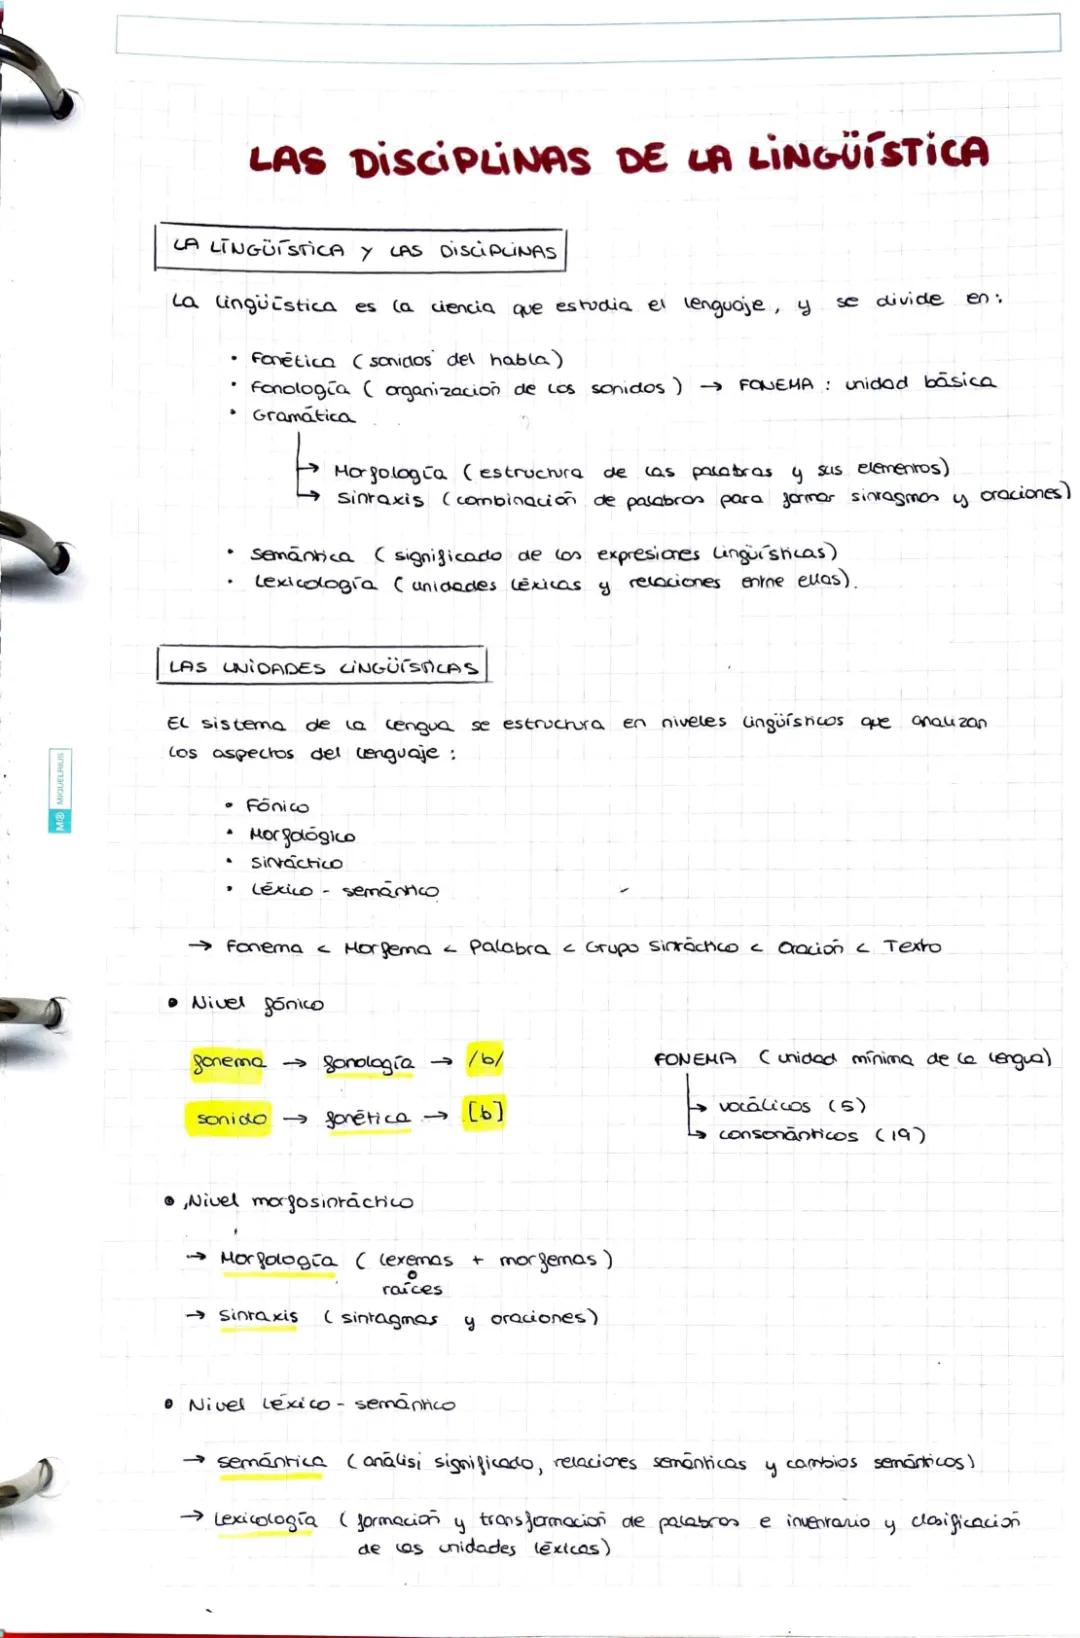 LAS DISCIPLINAS DE LA LINGÜÍSTICA
LA LINGÜÍSTICA Y LAS DISCIPLINAS
La lingüística es la ciencia que estudia el lenguaje, y se divide en:
• Fonética (sonidos del habla)
• Fonología (organización de los sonidos) → FONEMA: unidad básica
• Gramática
→ Morfología (estructura de las palabras y sus elementos)
→ Sintaxis (combinación de palabras para formar sintagmas y oraciones)
• Semántica (significado de las expresiones lingüísticas)
• Lexicología (unidades léxicas y relaciones entre ellas).
LAS UNIDADES LINGÜÍSTICAS
El sistema de la lengua se estructura en niveles lingüísticos que analizan
los aspectos del lenguaje:
• Fónico
• Morfológico
• Sintáctico
• Léxico - semántico
→ Fonema < Morfema < Palabra < Grupo Sintáctico < Oración < Texto
• Nivel fónico
fonema → fonología → /b/
sonido → fonética → [b]
FONEMA (unidad mínima de la lengua)
→ vocálicos (5)
→ consonánticos (19)
• Nivel morfosintáctico
→ Morfología (lexemas + morfemas)
o
raíces
→ Sintaxis (sintagmas y oraciones)
• Nivel léxico - semántico
→ semántica (análisi significado, relaciones semánticas y cambios semánticos)
→ Lexicología (formación y transformación de palabras e inventario y clasificación
de las unidades léxicas)
MIQUELRIUS